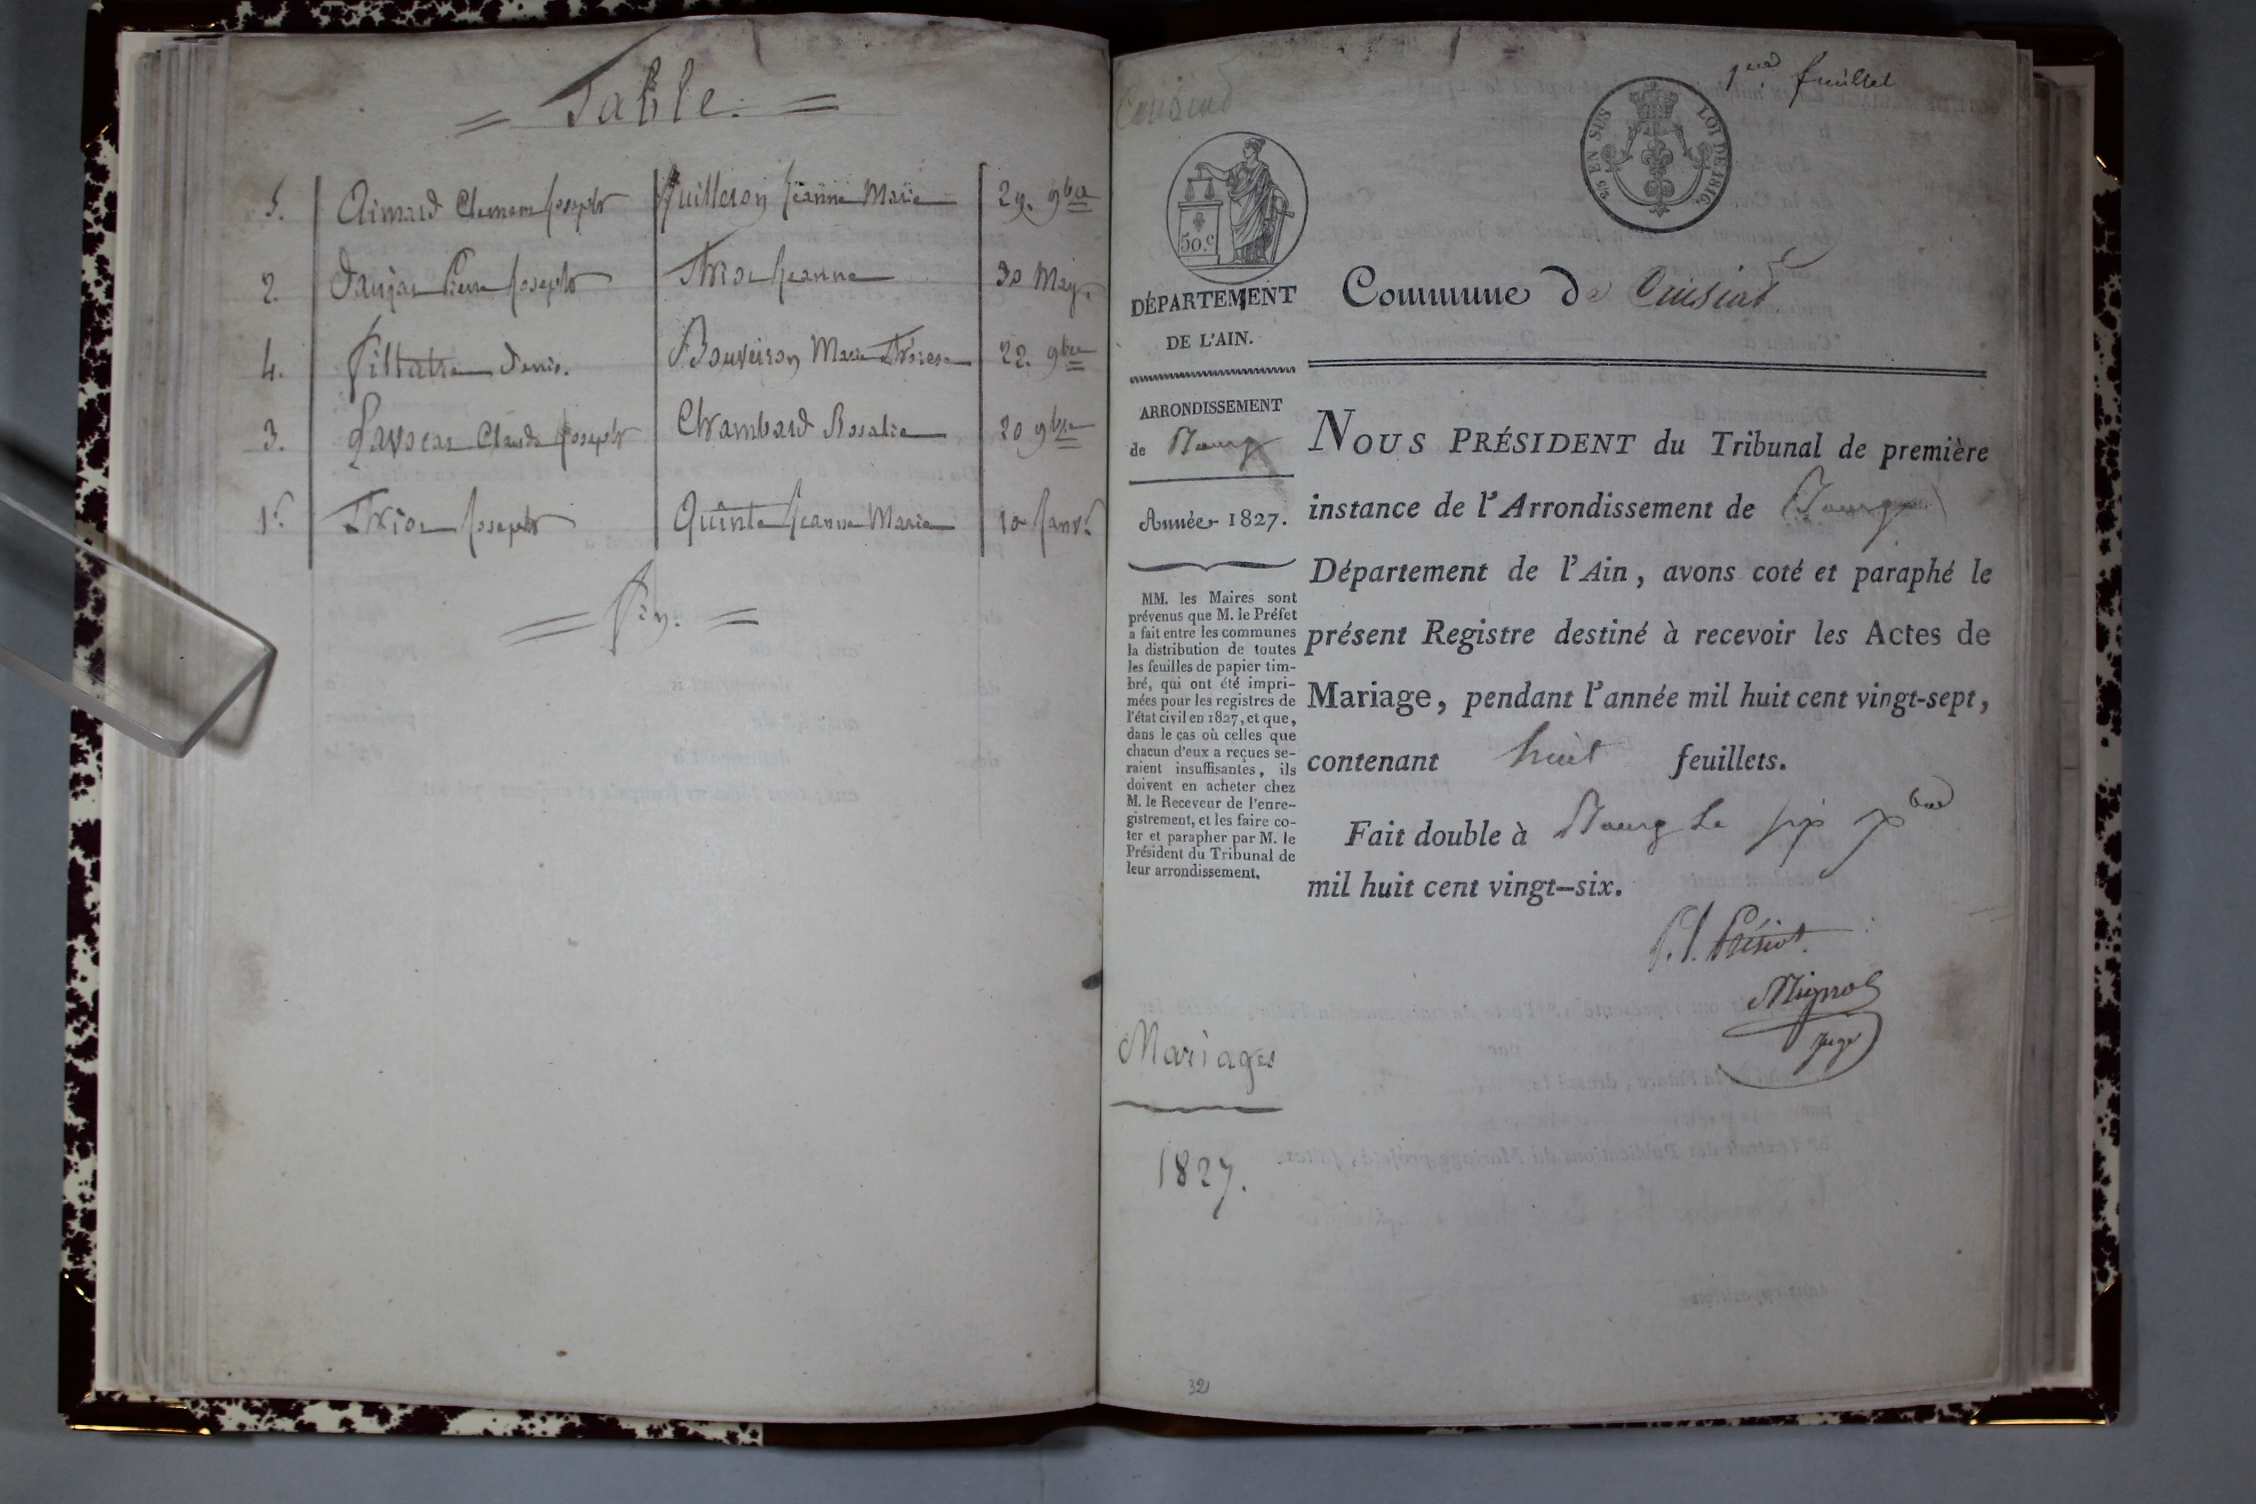 = Table. =
5. Aimard Clement Joseph Guilleron Jeanne Marie 29. 9bre
2. Danjan Pierre Joseph Jeanne 30 May.
4. Fillatre Denis. Bouveiron Marie Therese 22. 9bre
3. Claude Joseph Chambard Rosalie 20 9bre
1er Joseph Quinte Jeanne Marie 10 Janvr
= Fin. =
1er feuillet
Cuisiat
LOI DE 1816.
50.c
DÉPARTEMENT
DE L'AIN.
ARRONDISSEMENT
de Bourg
Année 1827.
MM. les Maires sont
prévenus que M. le Préfet
a fait entre les communes
la distribution de toutes
les feuilles de papier tim-
bré, qui ont été impri-
mées pour les registres de
l'état civil en 1827, et que,
dans le cas où celles que
chacun d'eux a reçues se-
raient insuffisantes, ils
doivent en acheter chez
M. le Receveur de l'enre-
gistrement, et les faire co-
ter et parapher par M. le
Président du Tribunal de
leur arrondissement.
Mariages
1827.
Commune de Cuisiat
NOUS PRÉSIDENT du Tribunal de première
instance de l'Arrondissement de Bourg
Département de l'Ain, avons coté et paraphé le
présent Registre destiné à recevoir les Actes de
Mariage, pendant l'année mil huit cent vingt-sept,
contenant huit feuillets.
Fait double à Bourg le six xbre
mil huit cent vingt-six.
Juge
32